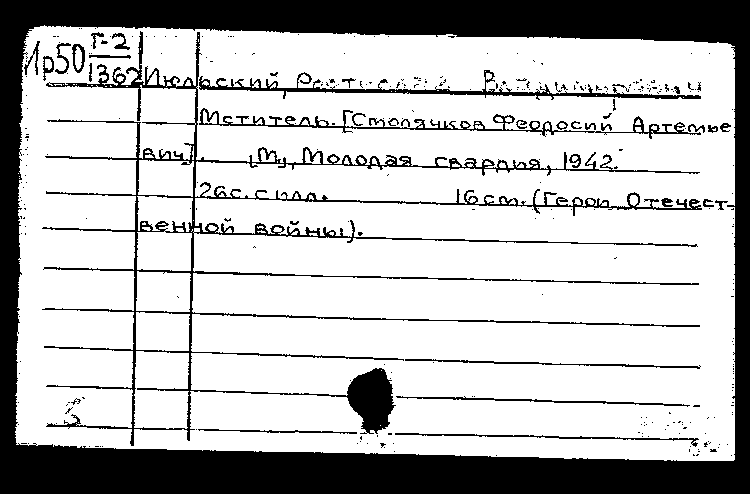 Ир50 Г-2
1362 Июльский, Ростислав Владимирович
Мститель. [Столячков Феодосий Артемье
вич]. [М], Молодая гвардия, 1942.
2ас. с илл. 16 см. (Герои Отечест-
венной войны).